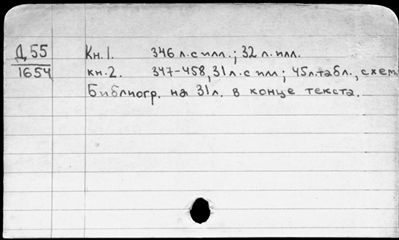 Д 55 Кн. 1. 346 л. с илл.; 32 л. илл.
1654 кн. 2. 347-458, 31 л. с илл; 45 л. табл., схем
Библиогр. на 31 л. в конце текста.